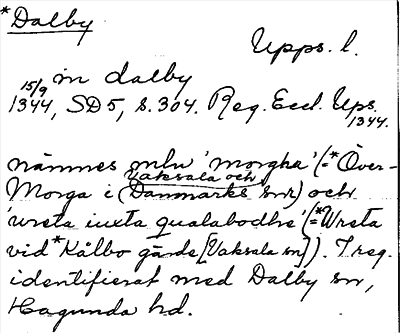 *Dalby
Upps. l.
in dalby
15/9 1344, SD5, s. 304. Reg. Eccl. Ups.
1344.
nämnes mln 'morgha' (=*Över-
Vaksala och
Morga i (Danmarks snr) och
'wrsta iuxta qualabodhe' (=*Wrsta
vid *Kålbo gärde [Vaksala sn]). I reg.
identifierat med Dalby sn,
Hagunda hd.